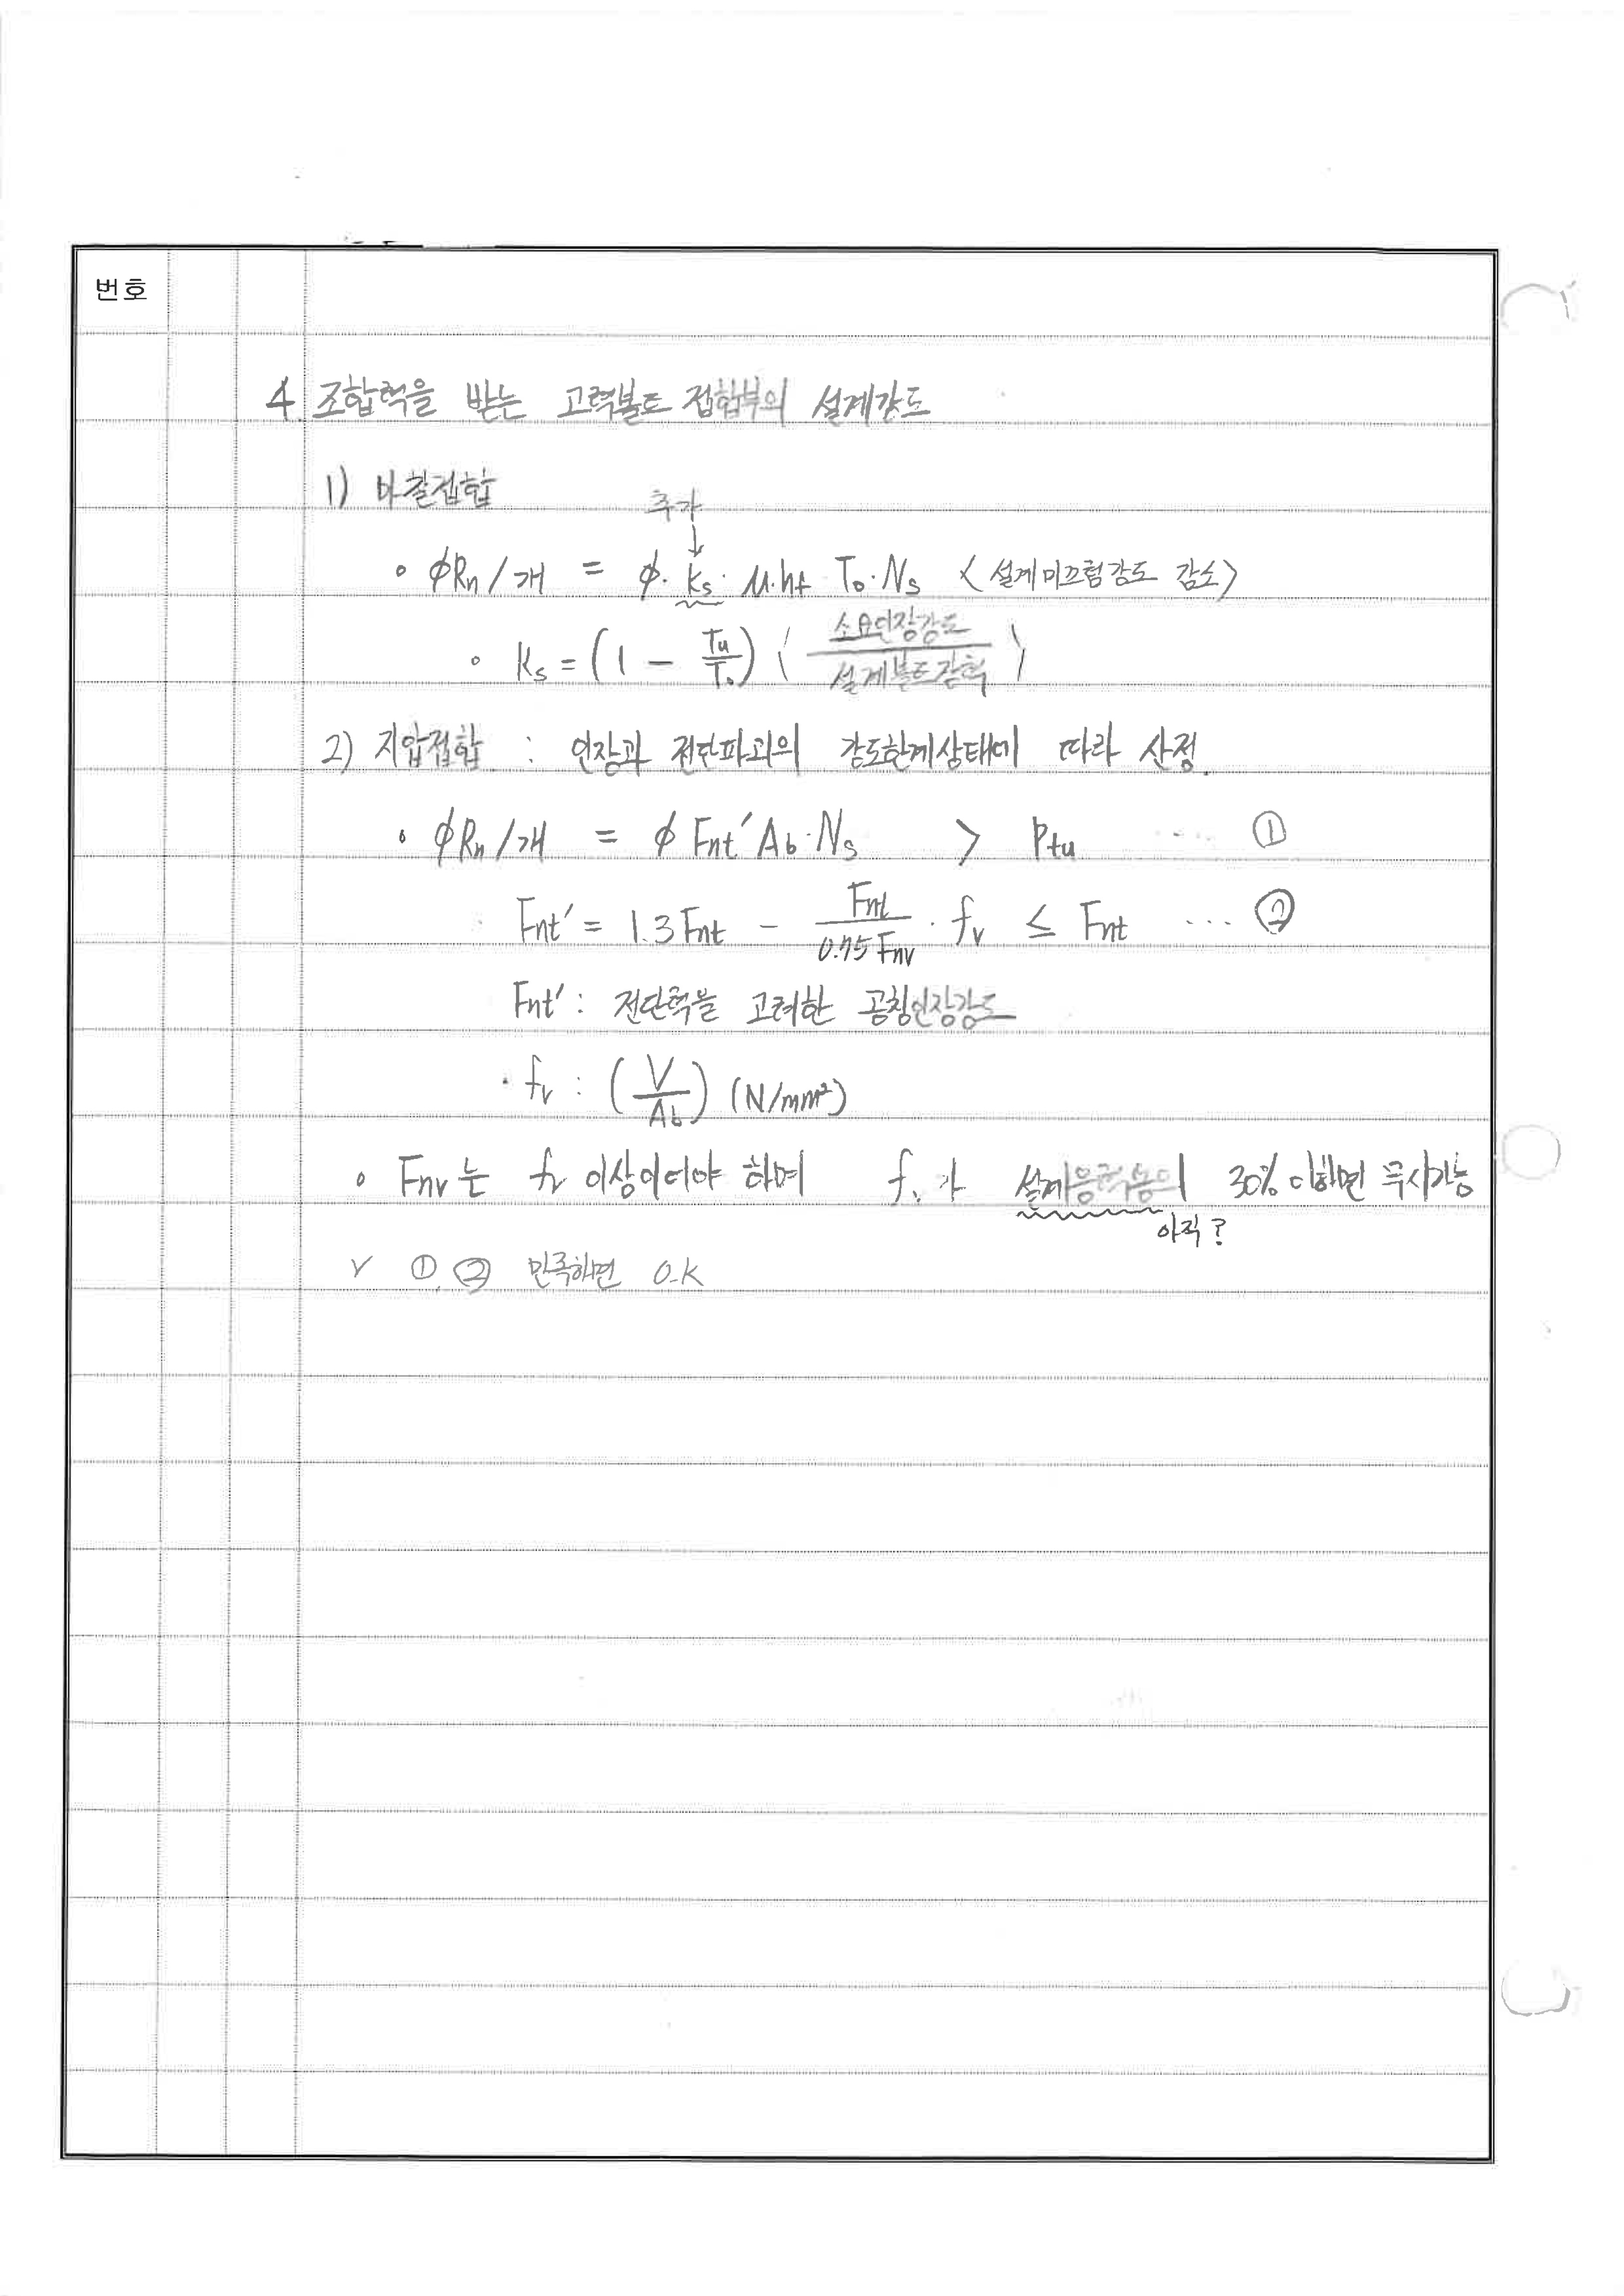 번호
4. 조합력을 받는 고력볼트 접합부의 설계강도
1) 마찰접합
추가
↓
∘ ϕRn/개 = ϕ·ks·μ·hf·To·Ns <설계미끄럼강도 감소>
∘ ks = (1 - Tu/To) (소요인장강도/설계볼트장력)
2) 지압접합 : 인장과 전단파괴의 강도한계상태에 따라 산정.
· ϕRn/개 = ϕ Fnt′ Ab·Ns > Ptu ··· ①
Fnt′ = 1.3 Fnt - Fnt/0.75 Fnv · fv ≤ Fnt ··· ②
Fnt′ : 전단력을 고려한 공칭인장강도
· fv : (V/Ab) (N/mm²)
∘ Fnv는 fv 이상이어야 하며 fv가 설계응력의 30% 이하면 무시가능
아직?
∨ ①, ② 만족하면 O.K